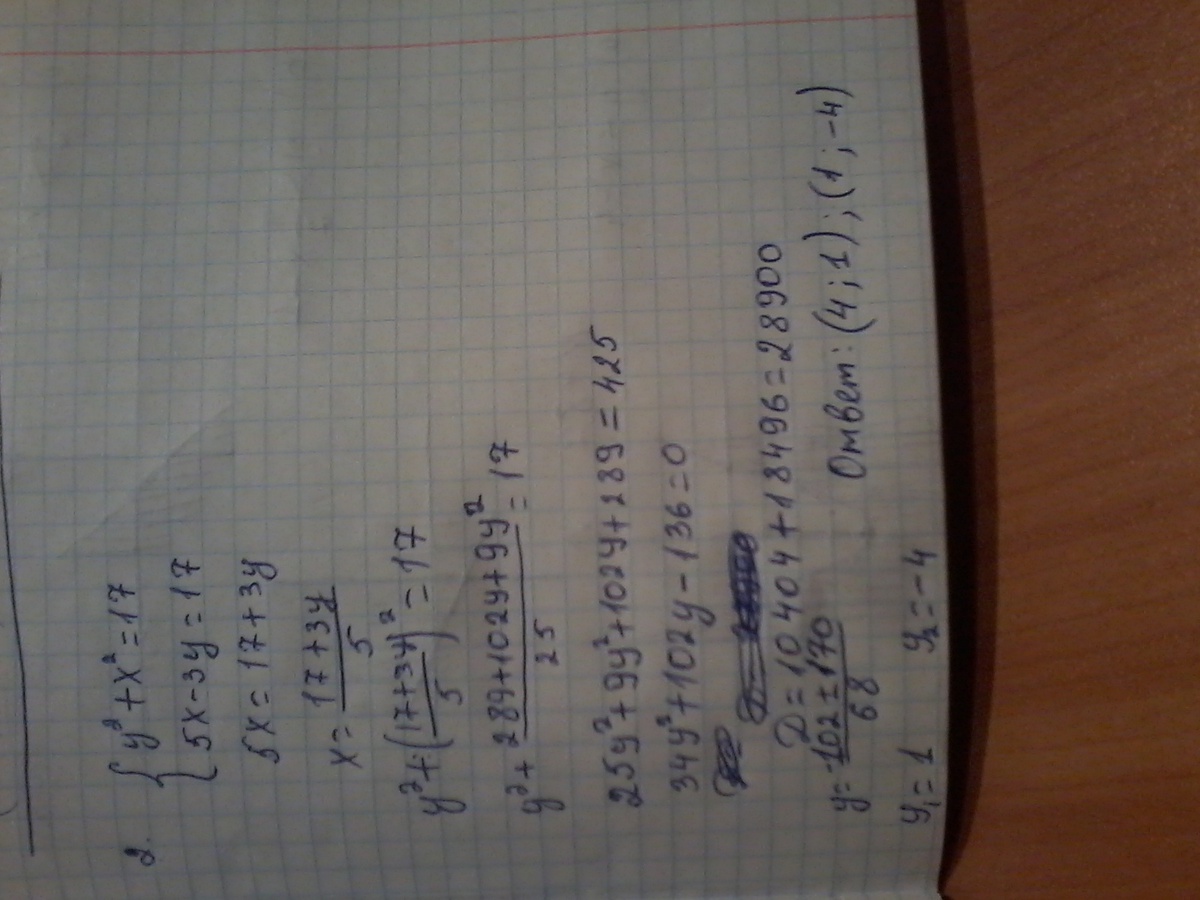 2. { y² + x² = 17
5x - 3y = 17
5x = 17 + 3y
x = (17 + 3y)/5
y² + ((17 + 3y)/5)² = 17
y² + (289 + 102y + 9y²)/25 = 17
25y² + 9y² + 102y + 289 = 425
34y² + 102y - 136 = 0
D = 10404 + 18496 = 28900
y = (-102 ± 170)/68
Ответ: (4; 1); (1; -4)
y₁ = 1 y₂ = -4